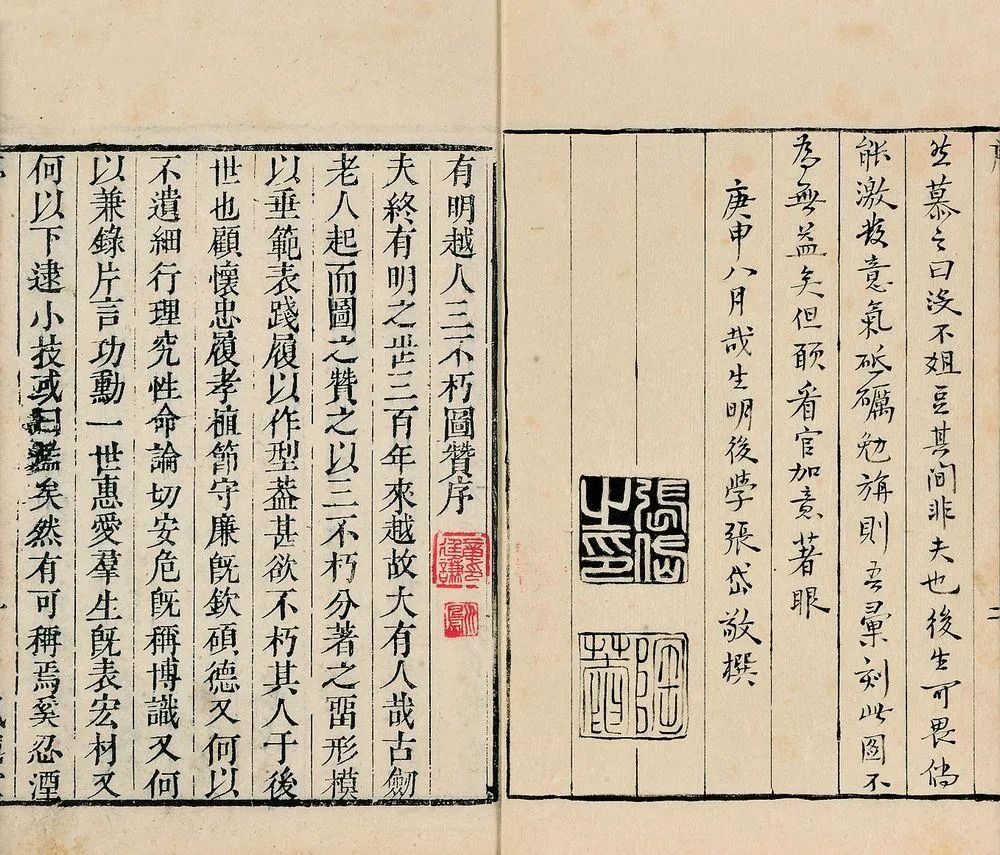 序
然慕之曰沒不俎豆其間非夫也後生可畏倘
能激發意氣砥礪勉旃則吾彙刻此圖不
為無益矣但願看官加意著眼
庚申八月哉生明後學張岱敬撰
張岱之印
二
有明越人三不朽圖贊序
夫終有明之世三百年來越故大有人哉古劒
老人起而圖之贊之以三不朽分著之畱形模
以垂範表踐履以作型葢甚欲不朽其人于後
世也顧懷忠履孝植節守廉旣欽碩德又何以
不遺細行理究性命論切安危旣稱博識又何
以兼錄片言功勳一世惠愛羣生旣表宏材又
何以下逮小技或曰濫矣然有可稱焉奚忍湮